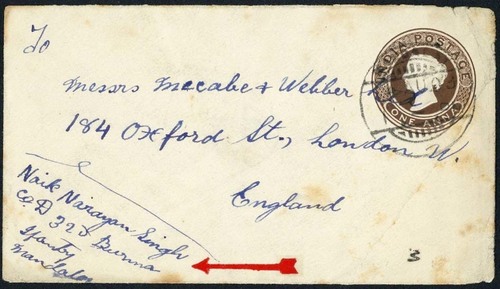 To
INDIA POSTAGE
ONE ANNA
Messrs Mccabe & Webber
184 Oxford St., London W.
England
Naik Narayan Singh
Co. D 32D Burma
Ifantry
Mandalay
3